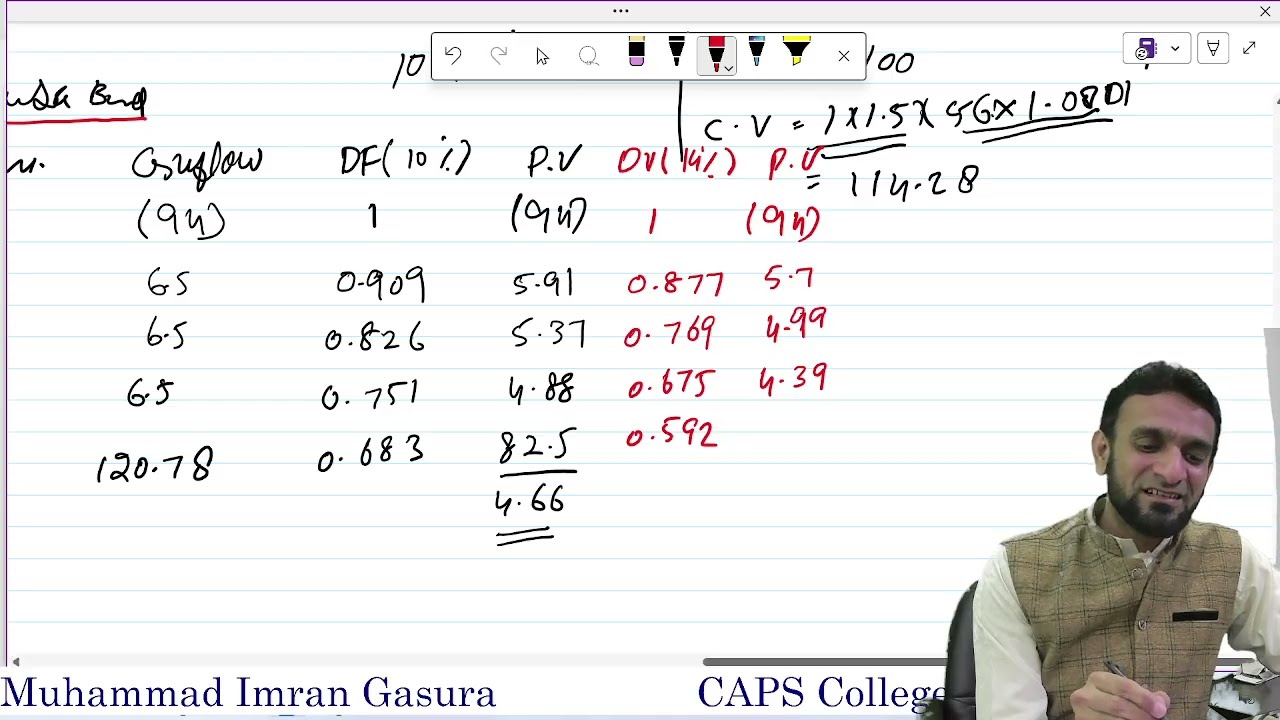 10
100
Bond
C.V = 1x1.5x 56x 1.08
= 114.28
Cashflow DF(10%) P.V DF(14%) P.V
(94) 1 (94) 1 (94)
6.5 0.909 5.91 0.877 5.7
6.5 0.826 5.37 0.769 4.99
6.5 0.751 4.88 0.675 4.39
120.78 0.683 82.5 0.592
4.66
Muhammad Imran Gasura CAPS College